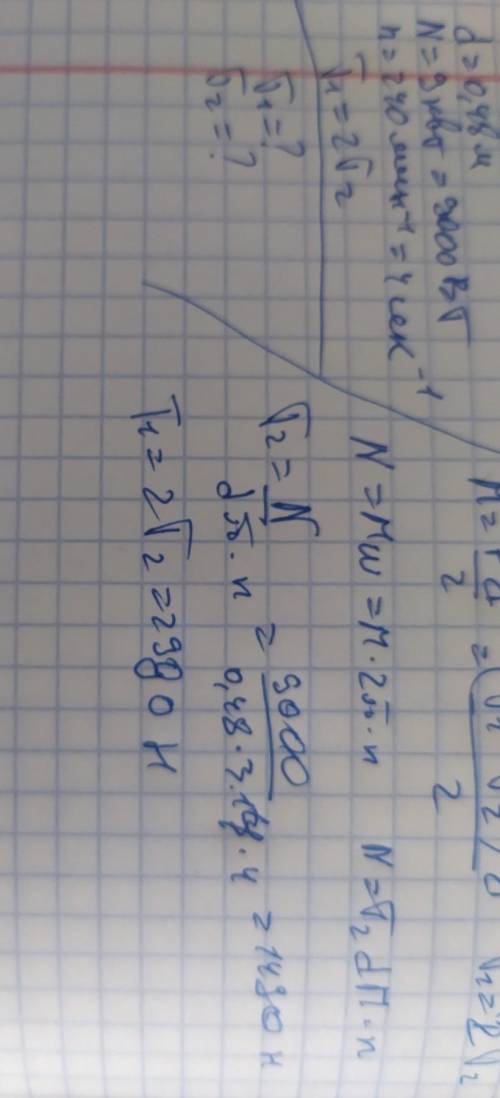 d = 0,48 м
N = 9 кВт = 9000 Вт
n = 240 мин⁻¹ = 4 сек⁻¹
T₁ = 2T₂
T₁ = ?
T₂ = ?
N = Mω = M · 2π · n N = T₂ d π · n
T₂ = N / (dπ · n) = 9000 / (0,48 · 3.14 · 4) = 1490 Н
T₁ = 2T₂ = 2980 Н